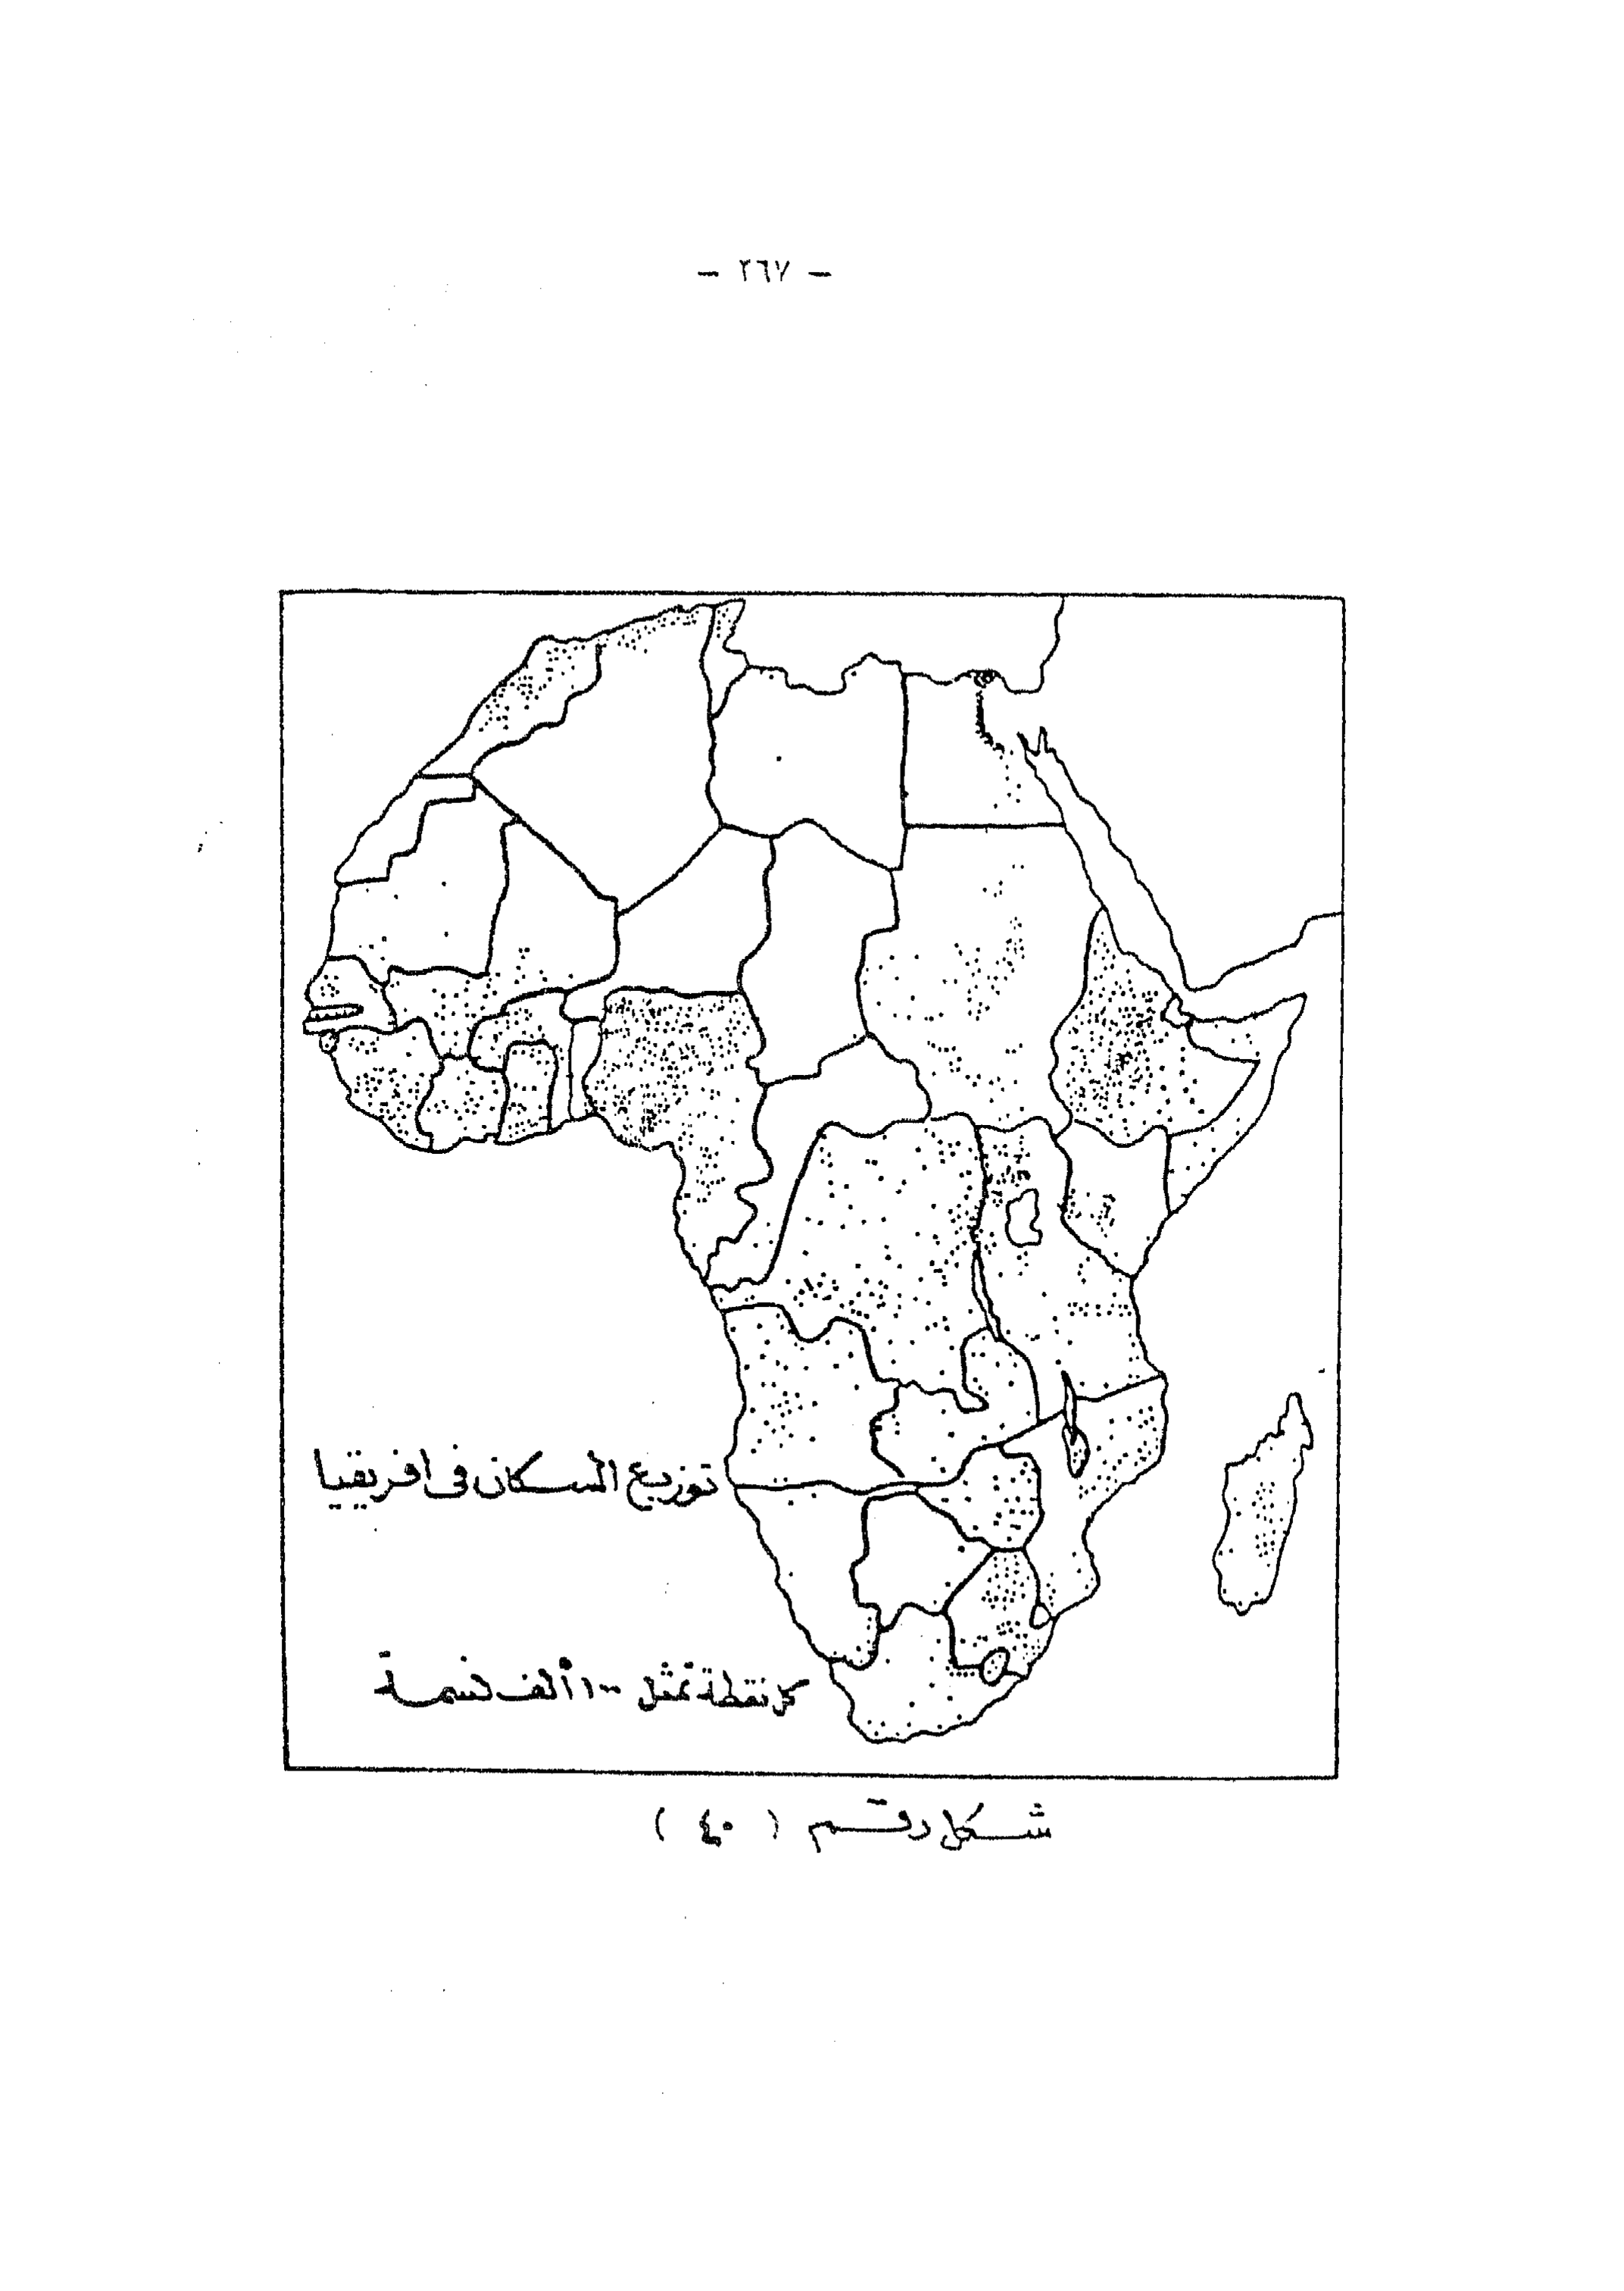 - ٢٦٧ -
توزيع السكان فى افريقيا
كل نقطة تمثل ١٠٠ ألف نسمة
شكل رقم ( ٤٠ )